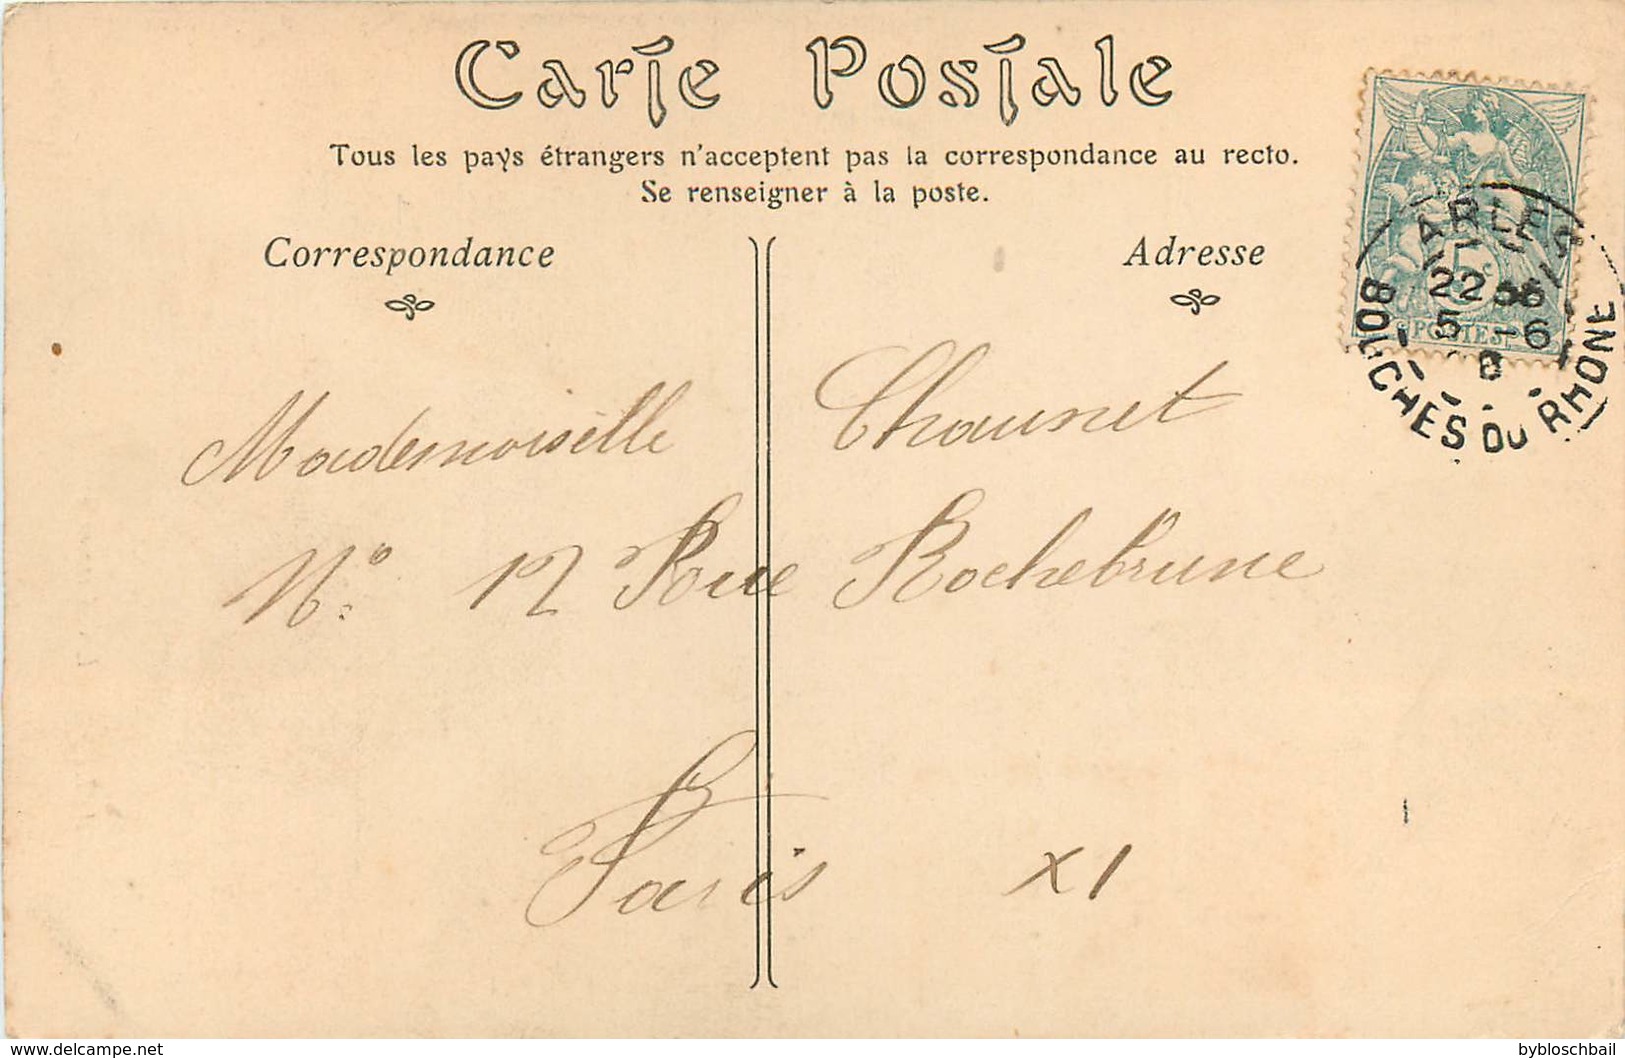 Carte Postale
Tous les pays étrangers n'acceptent pas la correspondance au recto.
Se renseigner à la poste.
Correspondance
Adresse
5c
POSTES
ARLES
22
5 -6
BOUCHES DU RHONE
Mademoiselle Chaunet
N° 12 Rue Rochebrune
Paris XI
www.delcampe.net
bybloschbail